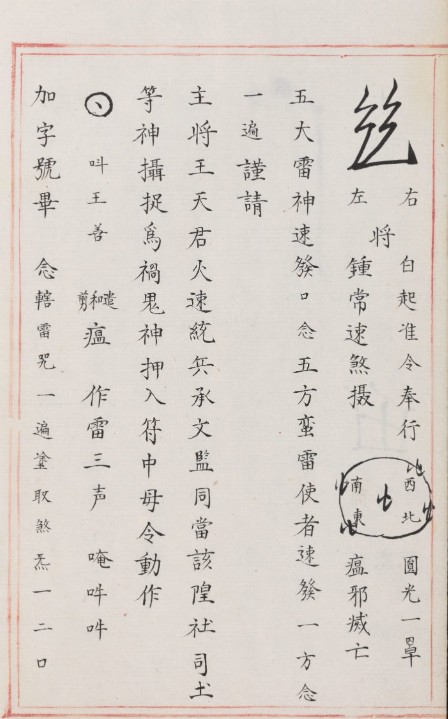 右
左
将
白起准令奉行
鍾常速煞摄
西北
南東
圓光一罩
瘟邪滅亡
五大雷神速發口念五方蛮雷使者速發一方念
一遍謹請
主將王天君火速統兵承文監同當該隍社司土
等神攝捉爲禍鬼神押入符中毋令動作
叫王善
遣和剪
瘟作雷三声唵吽吽
加字號畢念轄雷咒一遍塗取煞炁一二口